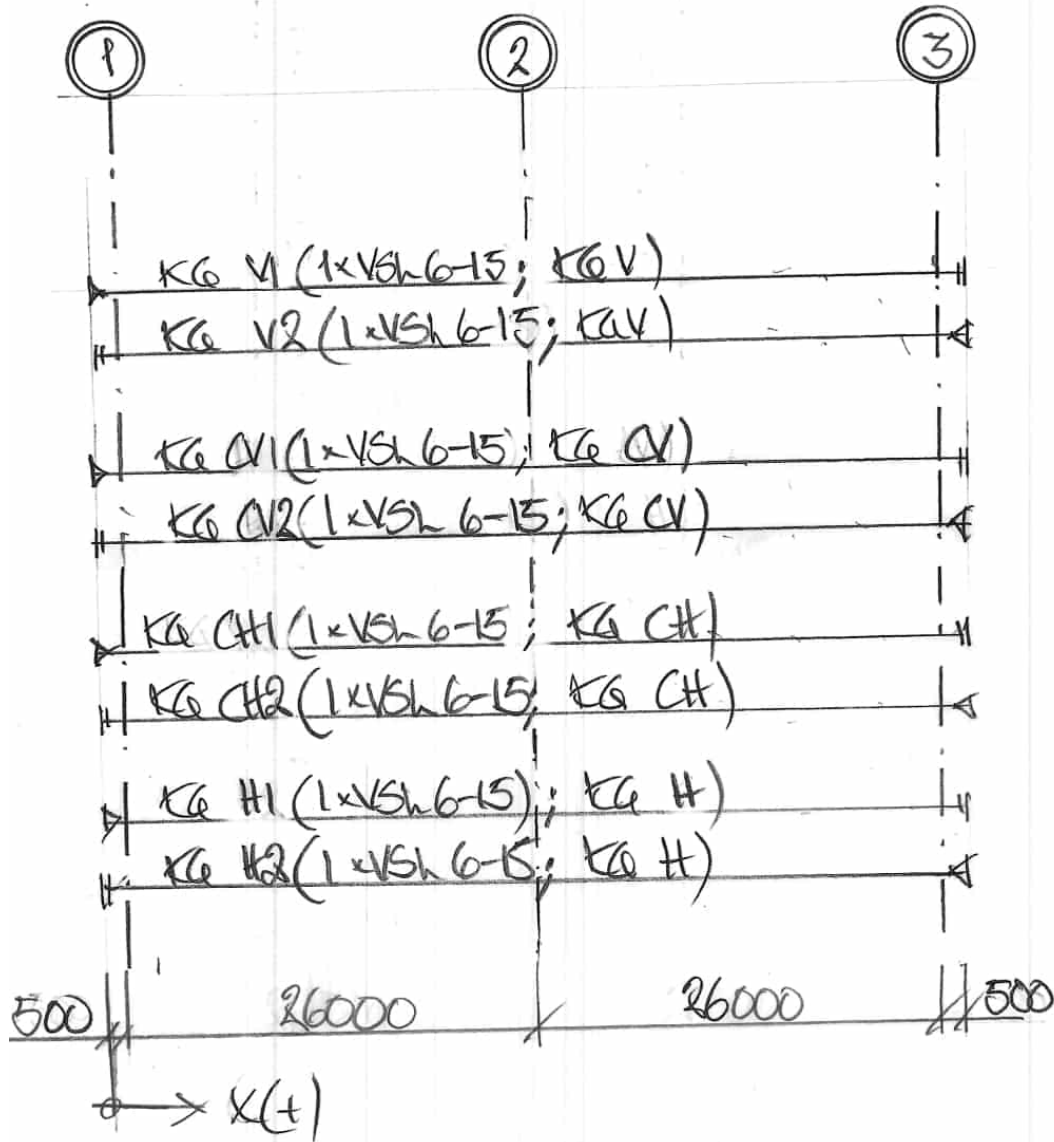 1 2 3
KG V1 (1xVSh 6-15; KG V)
KG V2 (1xVSh 6-15; KG V)
KG CV1 (1xVSh 6-15); KG CV)
KG CV2 (1xVSh 6-15; KG CV)
KG CH1 (1xVSh 6-15; KG CH)
KG CH2 (1xVSh 6-15; KG CH)
KG H1 (1xVSh 6-15); KG H)
KG H2 (1xVSh 6-15; KG H)
500 26000 26000 500
X(+)